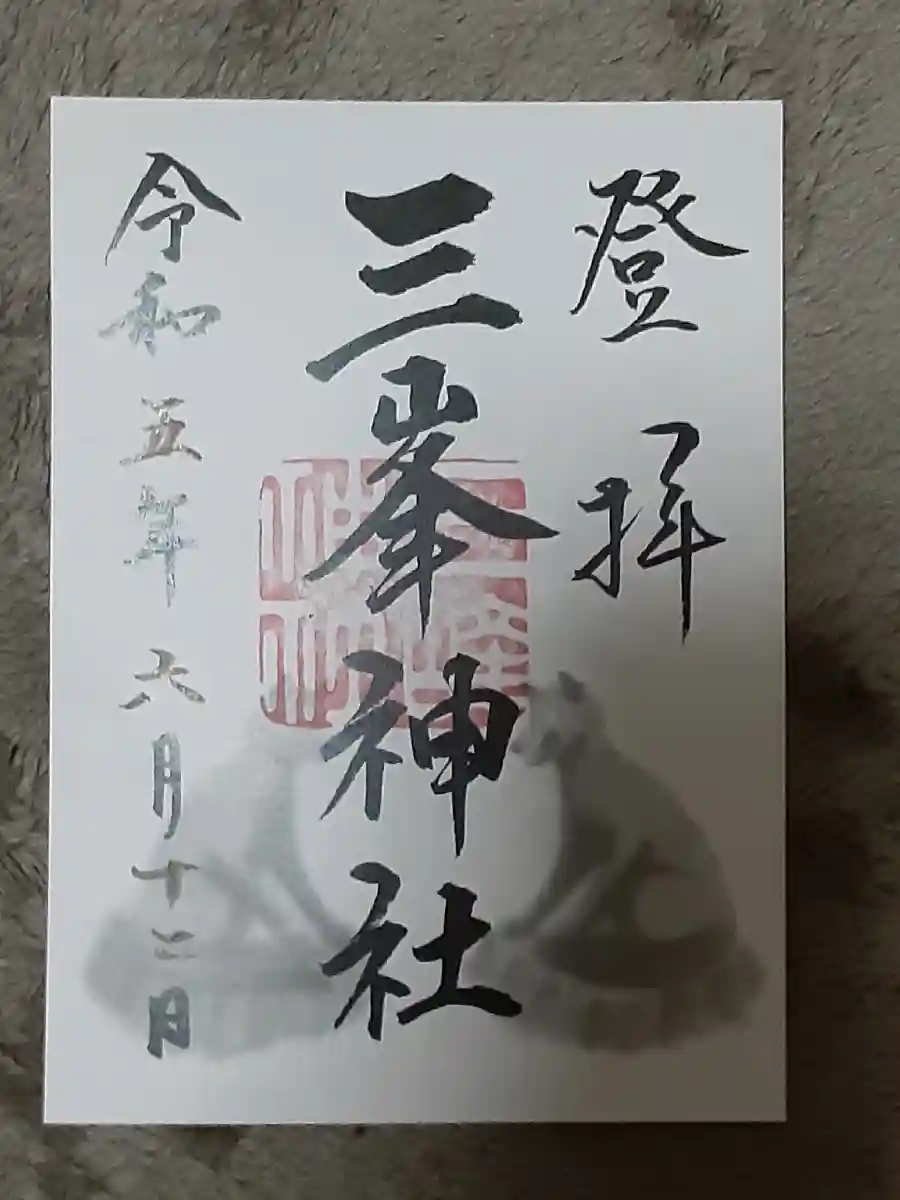 登拝
三峯神社
令和五年六月十二日